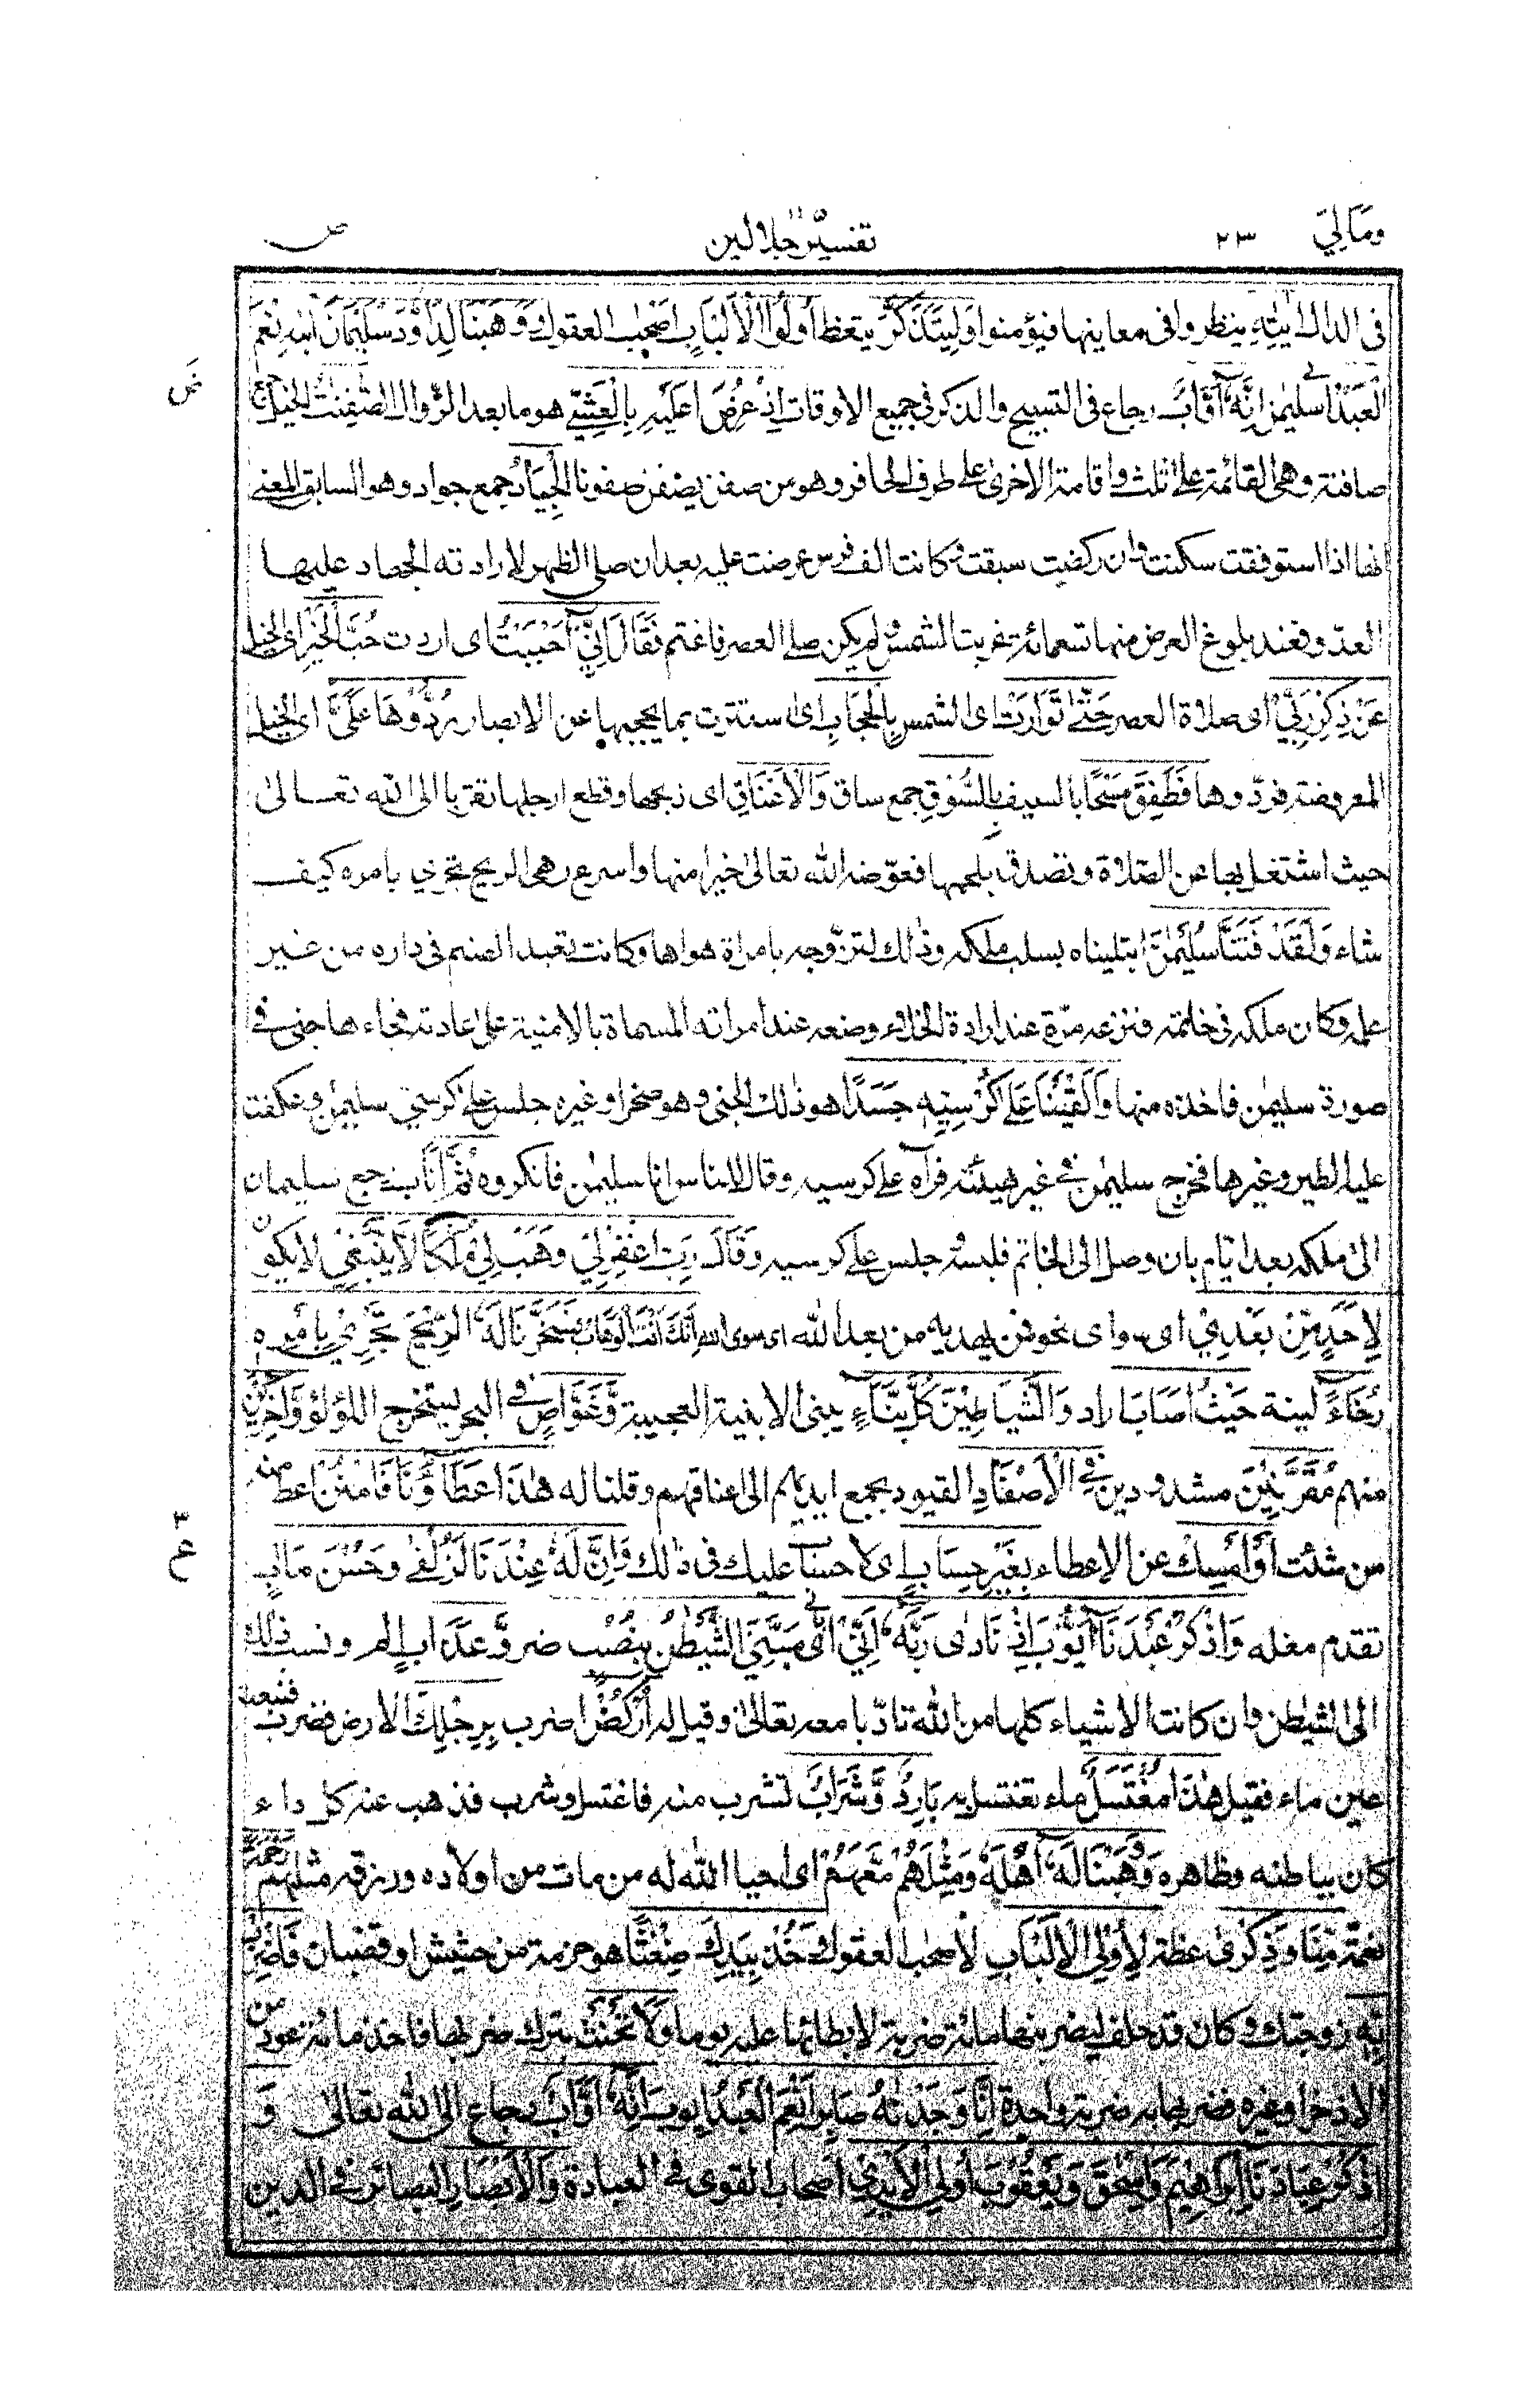 ومالي ٢٣ تفسير جلالين ص
فى الدال ايٰتِهٖ ينظروا فى معاينها فيؤمنوا وَلِيَتَذَكَّرَ يتعظ أُولُوا الْأَلْبَابِ اصحٰب العقول وَوَهَبْنَا لِدَاوٗدَ سُلَيْمَانَ ابنه نِعْمَ
الْعَبْدُ اى سليمٰن إِنَّهٗٓ أَوَّابٌ رجاع فى التسبيح والذكر فى جميع الاوقات إِذْ عُرِضَ عَلَيْهِ بِالْعَشِيِّ هو ما بعد الزوال الصّٰفِنٰتُ الخيل جمع
صافنة وهى القائمة على ثلث واقامة الاخرىٰ على طرف الحافر وهو من صفن يصفن صفونا الْجِيَادُ جمع جواد وهو السابق المعنى
انها اذا استوقفت سكنت وان ركضت سبقت وكانت الف فرس عرضت عليه بعد ان صلى الظهر لارادته الجهاد عليها
العدو فعند بلوغ العرض منها تسعمائة غربت الشمس ولم يكن صلى العصر فاغتم فَقَالَ إِنِّيٓ أَحْبَبْتُ اى اردت حُبَّ الْخَيْرِ اى الخيل
عَنْ ذِكْرِ رَبِّيْ اى صلاة العصر حَتّٰى تَوَارَتْ اى الشمس بِالْحِجَابِ اى استترت بما يحجبها عن الابصار رُدُّوْهَا عَلَيَّ اى الخيل
المعروضة فردوها فَطَفِقَ مَسْحًا بالسيف بِالسُّوْقِ جمع ساق وَالْأَعْنَاقِ اى ذبحها وقطع ارجلها تقربا الى الله تعالىٰ
حيث اشتغل بها عن الصلاة وتصدق بلحمها فعوضه الله تعالىٰ خيرا منها واسرع وهى الريح تجري بامره كيف
شاء وَلَقَدْ فَتَنَّا سُلَيْمٰنَ ابتليناه بسلب ملكه وذٰلك لتزوجه بامراة هواها وكانت تعبد الصنم فى داره من غير
علمه وكان ملكه فى خاتمه فنزعه مرة عند ارادة الخلاء ووضعه عند امراته المسماة بالامينة علىٰ عادته فجاءها جنى فى
صورة سليمٰن فاخذه منها وَأَلْقَيْنَا عَلٰى كُرْسِيِّهٖ جَسَدًا هو ذٰلك الجنى وهو صخر او غيره جلس على كرسي سليمٰن وعكفت
عليه الطير وغيرها فخرج سليمٰن فى غير هيئته فرآه على كرسيه وقال للناس انا سليمٰن فانكروه ثُمَّ أَنَابَ رجع سليمان
الى ملكه بعد ايام بان وصل الى الخاتم فلبسه وجلس على كرسيه وَقَالَ رَبِّ اغْفِرْ لِيْ وَهَبْ لِيْ مُلْكًا لَّا يَنْبَغِي لا يكون
لِأَحَدٍ مِّنْ بَعْدِيْ اى سواى نحو فمن يهديه من بعد الله اى سوى الله إِنَّكَ أَنْتَ الْوَهَّابُ فَسَخَّرْنَا لَهُ الرِّيْحَ تَجْرِيْ بِأَمْرِهٖ
رُخَآءً لينة حَيْثُ أَصَابَ اراد وَالشَّيَاطِيْنَ كُلَّ بَنَّآءٍ يبنى الابنية العجيبة وَّغَوَّاصٍ فى البحر يستخرج اللؤلؤ وَّاٰخَرِيْنَ
منهم مُقَرَّنِيْنَ مشدودين فِى الْأَصْفَادِ القيود بجمع ايديهم الى اعناقهم وقلنا له هٰذَا عَطَآؤُنَا فَامْنُنْ اعط منه
من شئت أَوْ أَمْسِكْ عن الاعطاء بِغَيْرِ حِسَابٍ اى لا حساب عليك فى ذٰلك وَإِنَّ لَهٗ عِنْدَنَا لَزُلْفٰى وَحُسْنَ مَاٰبٍ
تقدم مثله وَاذْكُرْ عَبْدَنَآ أَيُّوْبَ إِذْ نَادٰى رَبَّهٗٓ أَنِّيْ اى بانى مَسَّنِيَ الشَّيْطٰنُ بِنُصْبٍ ضر وَّعَذَابٍ الم ونسب ذٰلك
الى الشيطٰن وان كانت الاشياء كلها من الله تادبا معه تعالىٰ وقيل له أُرْكُضْ اضرب بِرِجْلِكَ الارض فضرب فنبعت
عين ماء فقيل هٰذَا مُغْتَسَلٌ ماء تغتسل به بَارِدٌ وَّشَرَابٌ تشرب منه فاغتسل وشرب فذهب عنه كل داء
كان بباطنه وظاهره وَوَهَبْنَا لَهٗٓ أَهْلَهٗ وَمِثْلَهُمْ مَّعَهُمْ اى احيا الله له من مات من اولاده ورزقه مثلهم رَحْمَةً
نعمة مِّنَّا وَذِكْرٰى عظة لِأُولِي الْأَلْبَابِ لاصحٰب العقول وَخُذْ بِيَدِكَ ضِغْثًا هو حزمة من حشيش او قضبان فَاضْرِبْ
بِّهٖ زوجتك وكان قد حلف ليضربنها مائة ضربة لابطائها عليه يوما وَلَا تَحْنَثْ بترك ضربها فاخذ مائة عود من
الاذخر او غيره فضربها به ضربة واحدة إِنَّا وَجَدْنٰهُ صَابِرًا نِعْمَ الْعَبْدُ ايوب إِنَّهٗٓ أَوَّابٌ رجاع الى الله تعالىٰ وَ
اذْكُرْ عِبَادَنَآ إِبْرَاهِيْمَ وَإِسْحٰقَ وَيَعْقُوْبَ أُولِي الْأَيْدِيْ اصحاب القوى فى العبادة وَالْأَبْصَارِ البصائر فى الدين
٣
ع